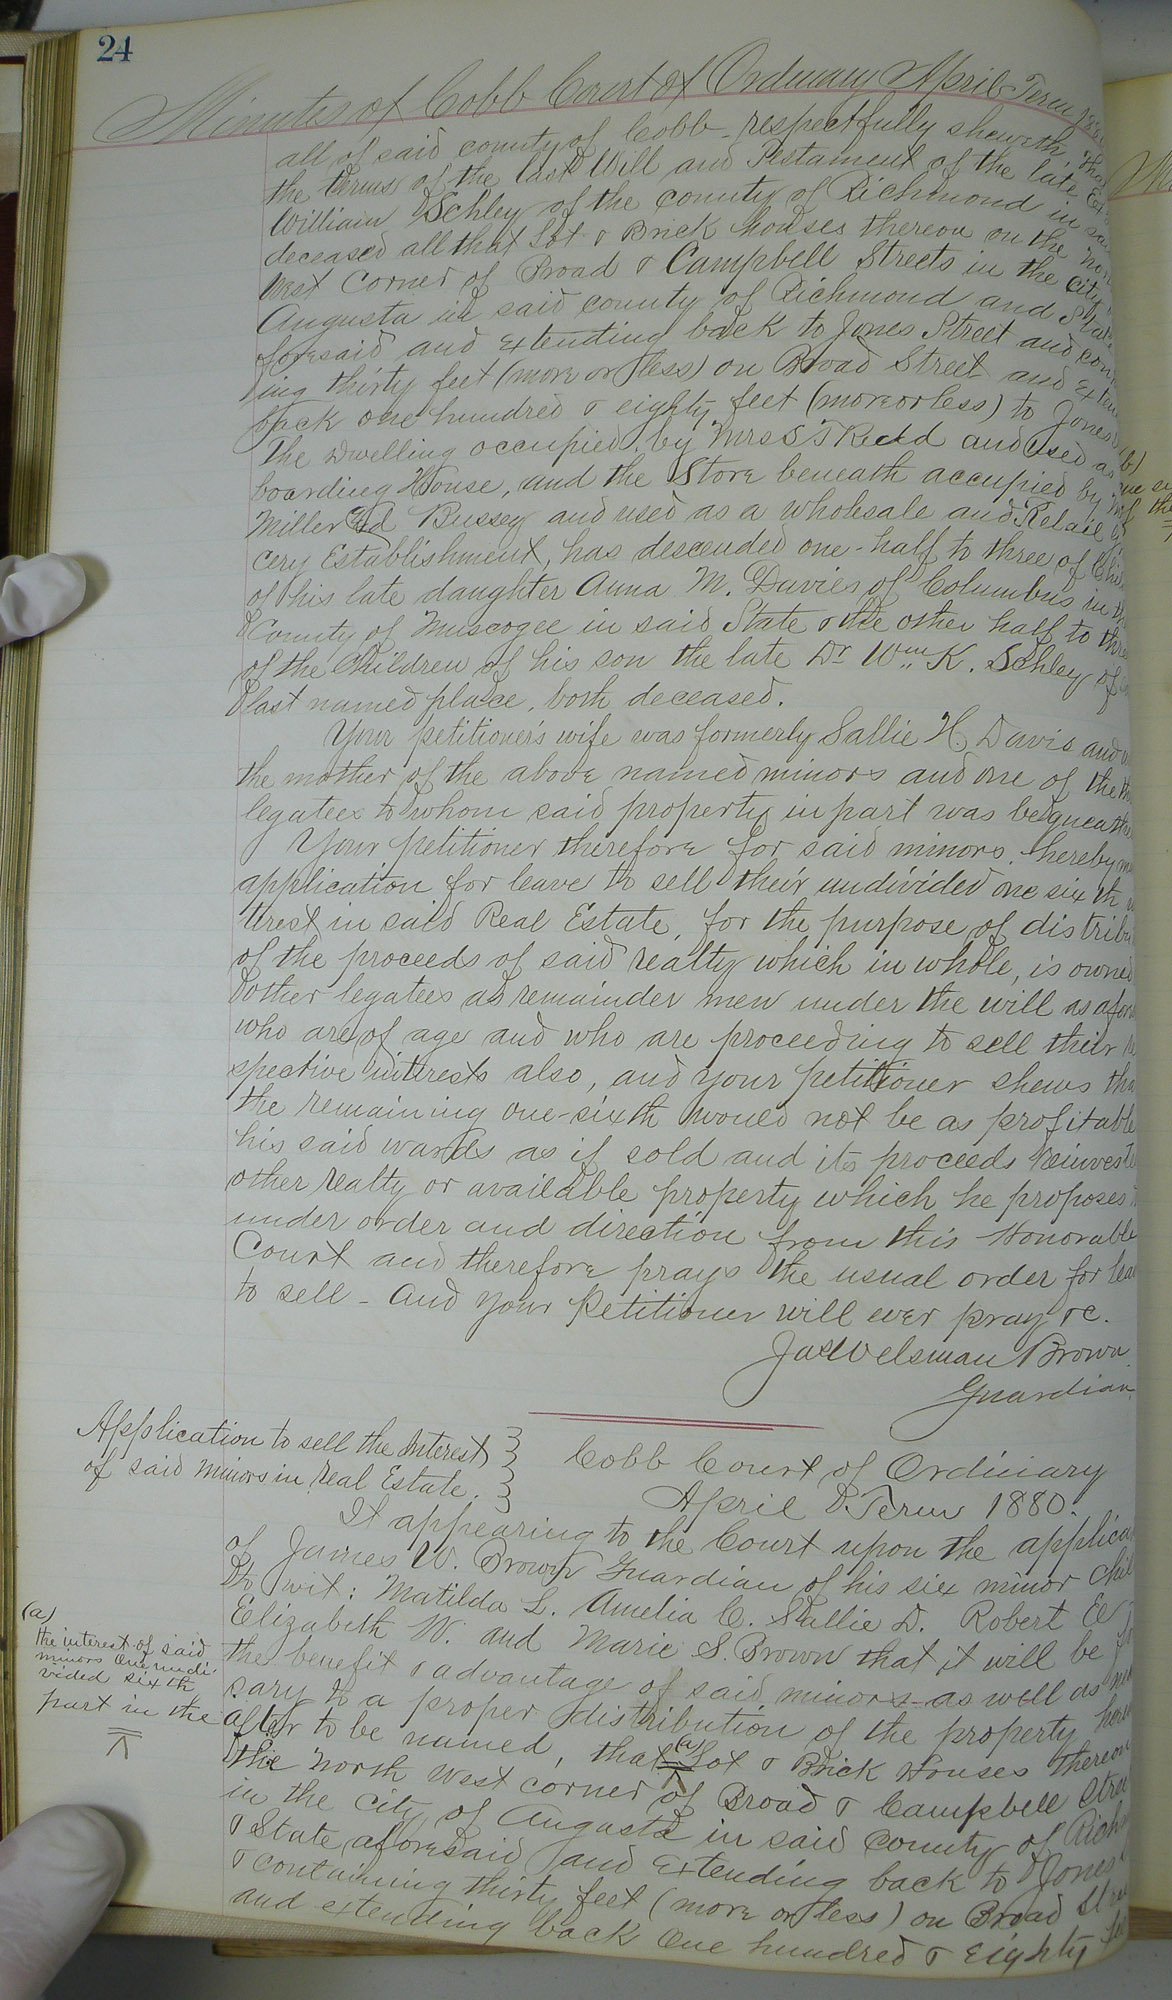 24
Minutes of Cobb Court of Ordinary April Term
all of said county of Cobb respectfully sheweth, that
the terms of the last Will and Testament of the late
William Schley of the county of Richmond in
deceased all that Lot & Brick houses thereon on the
West Corner of Broad & Campbell Streets in the City
Augusta in said county of Richmond and State
foresaid and extending back to Jones Street and
ing thirty feet (more or less) on Broad Street and
back one hundred & eighty feet (more or less) to Jones
The Dwelling occupied by Mrs S J Redd and used as
boarding House, and the Store beneath occupied by
Miller and Bussey and used as a wholesale and Retail
cery Establishment, has descended one-half to three of
of his late daughter Anna M. Davies of Columbus in
County of Muscogee in said State & the other half to
of the Children of his son the late Dr Wm K. Schley of
last named place, both deceased.
Your petitioner's wife was formerly Sallie H. Davis and
the mother of the above named minors and one of the
legatees to whom said property in part was
Your petitioner therefore for said minors, hereby
application for leave to sell their undivided one sixth
trest in said Real Estate, for the purpose of
of the proceeds of said realty which in whole, is
other legatees as remainder men under the will as
who are of age and who are proceeding to sell their
spective interests also, and your petitioner shews
the remaining one-sixth would not be as profitable
his said wards as if sold and its proceeds
other realty or available property which he proposes
under order and direction from this Honorable
Court and therefore prays the usual order for
to sell - And your Petitioner will ever pray &c.
Jas Welsman Brown
Guardian.
Application to sell the Interest
of said minors in real Estate.
Cobb Court of Ordinary
April Term 1880.
It appearing to the Court upon the
of James W. Brown Guardian of his six minor
to wit: Matilda L. Amelia C. Sallie D. Robert
Elizabeth W. and Marie S. Brown that it will be
the benefit & advantage of said minors as well as
sary to a proper distribution of the property
after to be named, that (a) Lot & Brick Houses thereon
the North West corner of Broad & Campbell
in the city of Augusta in said County of
& State aforesaid and extending back to Jones
& containing thirty feet (more or less) on Broad
and extending back One hundred & Eighty
(a)
the interest of said
minors One undi-
vided sixth
part in the